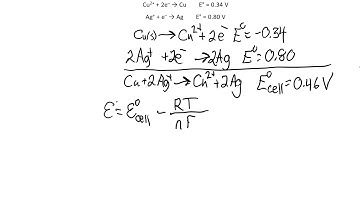 Cu²⁺ + 2e⁻ → Cu E° = 0.34 V
Ag⁺ + e⁻ → Ag E° = 0.80 V
Cu(s) → Cu²⁺ + 2e⁻ E⁰ = -0.34
2Ag⁺ + 2e⁻ → 2Ag E⁰ = 0.80
Cu + 2Ag⁺ → Cu²⁺ + 2Ag E⁰cell = 0.46 V
E = E⁰cell - RT/nF